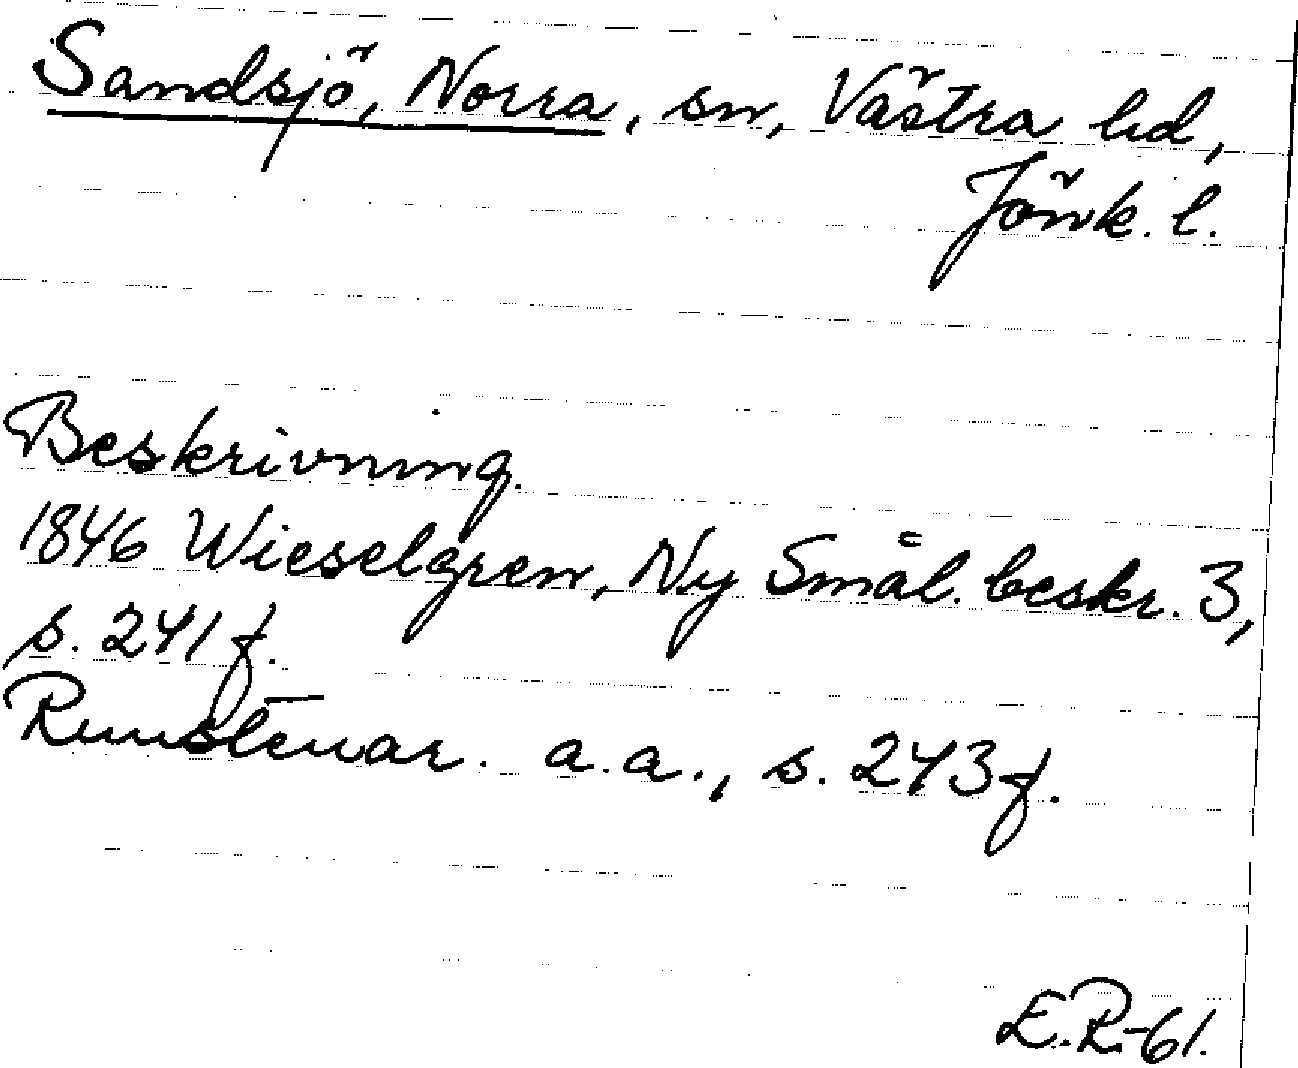 Sandsjö, Norra, sn, Västra hd,
Jönk. l.
Beskrivning.
1846 Wieselgren, Ny Smål. beskr. 3,
s. 241 f.
Runstenar. a.a., s. 243 f.
E.R.-61.